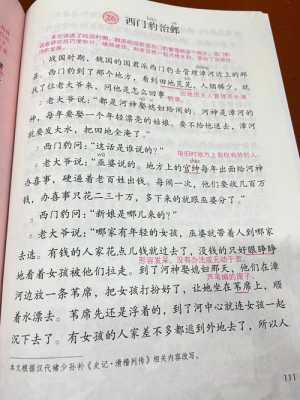 26 西门豹治邺
战国时期，魏国的国君派西门豹去管理漳河边上的邺
县。西门豹到了那个地方，看到田地荒芜，人烟稀少，就
找了位老大爷来，问他是怎么回事。
老大爷说：“都是河神娶媳妇给闹的。河神是漳河的
神，每年要娶一个年轻漂亮的姑娘。要不给他送去，漳河
就要发大水，把田地全淹了。”
西门豹问：“这话是谁说的？”
老大爷说：“巫婆说的。地方上的官绅每年出面给河神
办喜事，硬逼着老百姓出钱。每闹一次，他们要收几百万
钱，办喜事只花二三十万，多下来的就跟巫婆分了。”
西门豹问：“新娘是哪儿来的？”
老大爷说：“哪家有年轻的女孩，巫婆就带着人到哪家
去选。有钱的人家花点儿钱就过去了，没钱的只好眼睁睁
地看着女孩被他们拉走。到了河神娶媳妇那天，他们在漳
河边放一条苇席，把女孩打扮好了，让她坐在苇席上，顺
着水漂去。苇席先还是浮着的，到了河中心就连女孩一起
沉下去了。有女孩的人家差不多都逃到外地去了，所以人
本文根据汉代褚少孙补《史记·滑稽列传》相关内容改写。
111